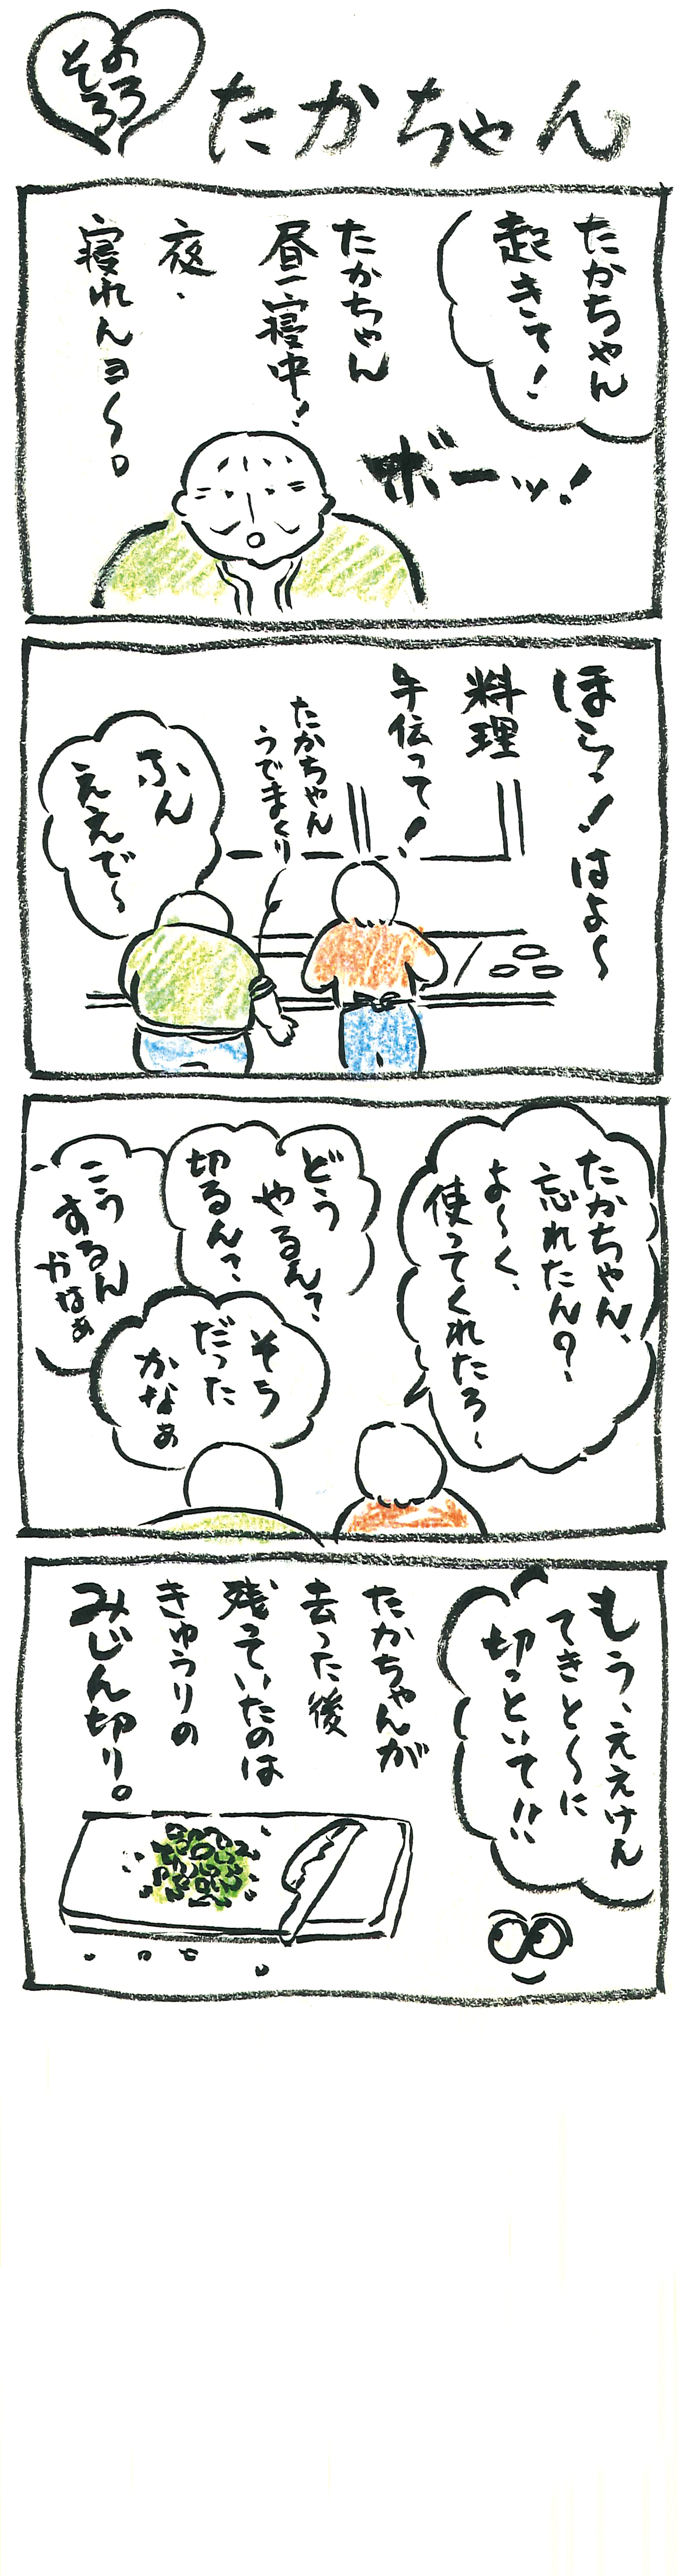 よろ
そろ
たかちゃん
たかちゃん
起きて!
ボーッ!
たかちゃん
昼寝中!
夜、
寝れんヨ〜。
ほらっ!はよ〜
料理
手伝って!
たかちゃん
うでまくり
ふん
ええで〜
たかちゃん、
忘れたん?、
よ〜く、
使ってくれたろ〜
どう
やるん?
切るん?
こう
するん
かなぁ
そう
だった
かなぁ
もう、ええけん
てきと〜に
切っといて!!
たかちゃんが
去った後
残っていたのは
きゅうりの
みじん切り。